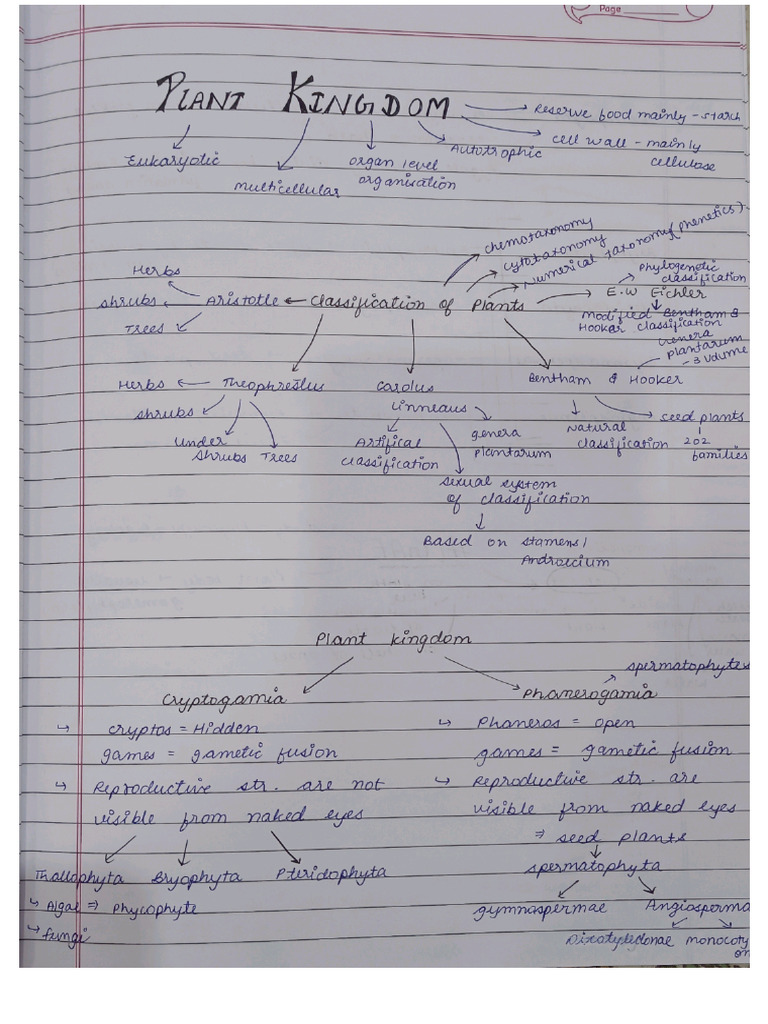 Page
PLANT KINGDOM
Reserve food mainly - starch
cell wall - mainly
cellulose
Autotrophic
Eukaryotic
organ level
organisation
multicellular
chemotaxonomy
cytotaxonomy
Numerical taxonomy (phenetics)
Phylogenetic
classification
Herbs
shrubs
Trees
Aristotle
Classification of Plants
E.W Eichler
modified Bentham &
Hooker classification
Genera
plantarum
- 3 volume
Herbs
shrubs
under
shrubs
Trees
Theophrestus
Carolus
Linneaus
Bentham & Hooker
Artifical
classification
genera
plantarum
Natural
classification
seed plants
202
families
sexual system
of classification
Based on stamens /
Androecium
Plant kingdom
spermatophytes
Cryptogamia
Phanerogamia
cryptos = Hidden
Phaneros = open
games = gametic fusion
games = gametic fusion
Reproductive str. are not
Reproductive str. are
visible from naked eyes
visible from naked eyes
⇒ seed plants
Thallophyta Bryophyta Pteridophyta
spermatophyta
Algae ⇒ Phycophyte
gymnospermae Angiosperma
fungi
Dicotyledonae monocoty
on